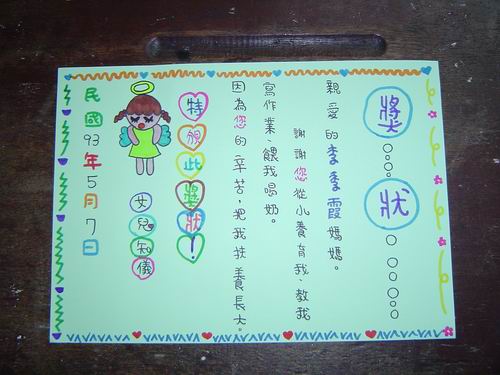 獎狀
親愛的李季霞媽媽。
謝謝您從小養育我、教我
寫作業、餵我喝奶。
因為您的辛苦,把我扶養長大。
特頒此獎狀!
女兒知儀
民國93年5月7日